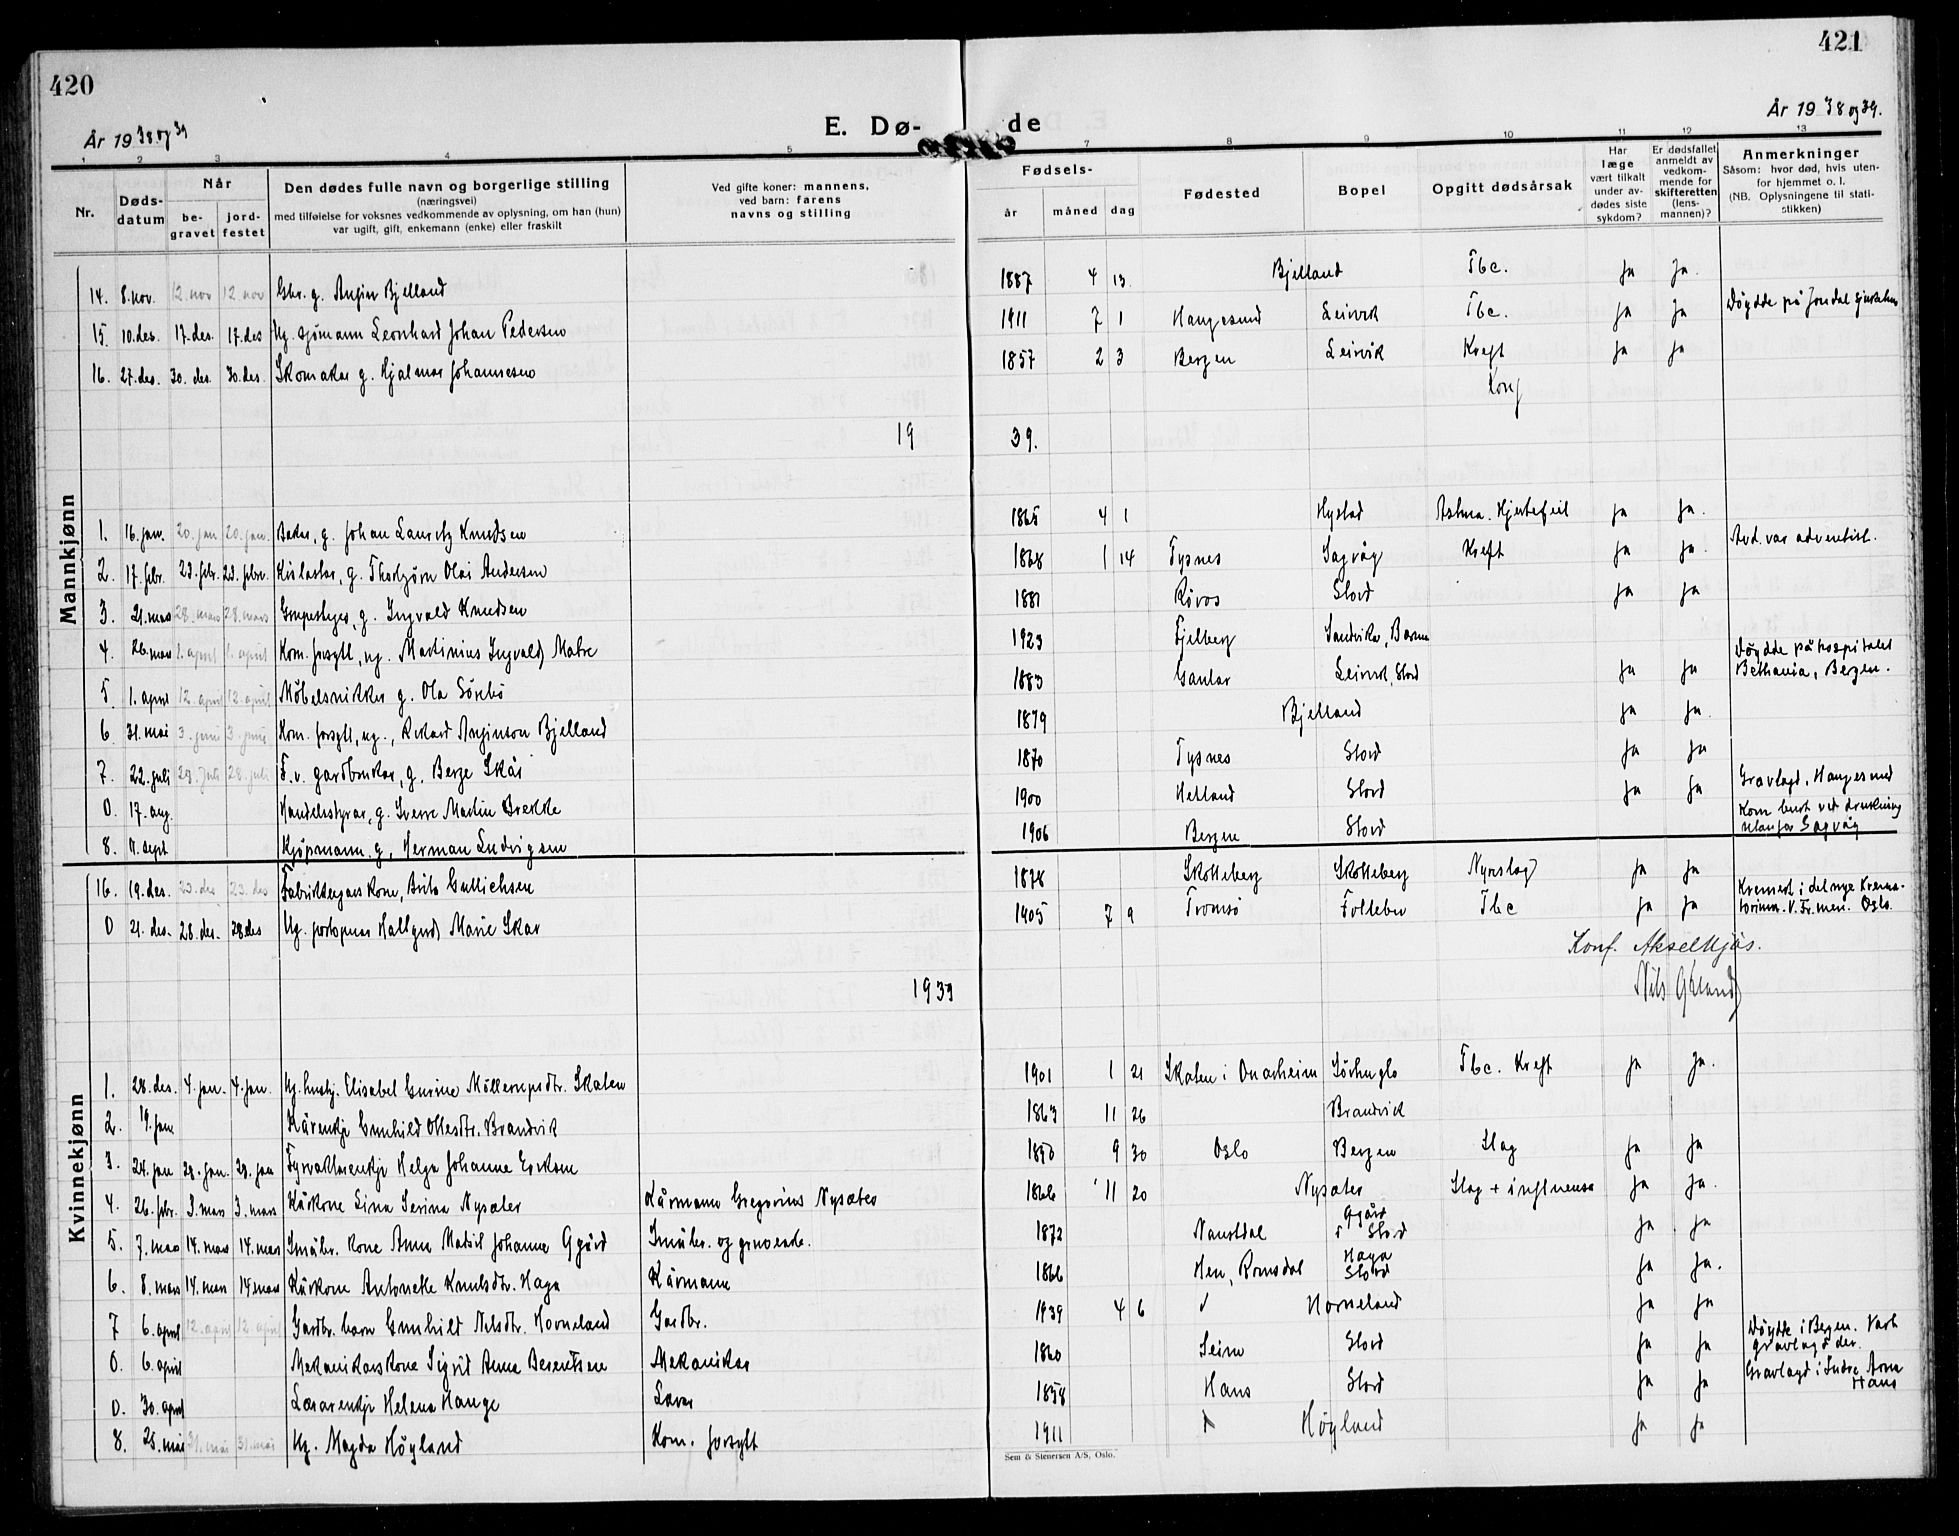 420
421
År 1938 og 39
E. Dø-
de
År 1938 og 39.
1 2 3 4 5 7 8 9 10 11 12 13
Nr.
Døds-
datum
Når
be-
gravet
jord-
festet
Den dødes fulle navn og borgerlige stilling
(næringsvei)
med tilføielse for voksnes vedkommende av oplysning, om han (hun)
var ugift, gift, enkemann (enke) eller fraskilt
Ved gifte koner: mannens,
ved barn: farens
navns og stilling
Fødsels-
år
måned
dag
Fødested
Bopel
Opgitt dødsårsak
Har
læge
vært tilkalt
under av-
dødes siste
sykdom?
Er dødsfallet
anmeldt av
vedkom-
mende for
skifteretten
(lens-
mannen)?
Anmerkninger
Såsom: hvor død, hvis uten-
for hjemmet o. l.
(NB. Oplysningene til stati-
stikken)
Mannkjønn
14. 8. nov. 12. nov 12 nov Gbr. g. Bjelland 1887 4 13. Bjelland Tbc. Ja Ja.
15. 10. des. 17. des. 17. des Ug. sjømann Leonhard Johan Pedersen 1911 7 1 Haugesund Leirvik Tbc. Ja Ja Døydde på
16. 27. des. 30. des. 30. des. Skomakar g. Hjalmar Johannesen 1857 2 3 Bergen Leirvik Kreft Ja Ja
19 39.
1. 16. jan. 20. jan 20. jan. g. Johan Lauritz Knudsen 1865 4 1 Hystad Astma. Hjertefeil Ja Ja.
2. 17. febr. 23. febr. 23. febr. g. Thorbjørn Olai Andersen 1868 1 14 Tysnes Sagvåg Kreft Ja Ja. Avd. var adventist.
3. 21. mars 28. mars 28. mars g. Ingvald Knudsen 1881 Røros Stord Ja Ja
4. 26. mars 1. april 1. april Kom. forsytt, ug. Martinius Ingvald Matre 1923 Fjelberg Sandvika, Bærum
5 1. april 12. april 12. april Møbelsnikker g. Ola Sörbö 1883 Gaular Leirvik, Stord Ja Ja Døydde på hospitalet
Bethania, Bergen.
6. 31. mai 3. juni 3. juni Kom. forsytt, ug., Rikard Bjelland 1879 Bjelland Ja Ja.
7. 22. juli 28. juli 28. juli F. v. gardbrukar, g. Berge Skår 1870 Tysnes Stord Ja Ja
0. 17. aug. Handelsstyrar, g. Sverre Martin Brekke 1900 Hetland Stord Ja Ja Gravlagd, Haugesund
8. 11. sept Kjøpmann. g, Herman Ludvigsen 1906 Bergen Stord Kom burt ved drukning
utanfor Sagvåg
Kvinnekjønn
16. 19. des. 23. des 23. des Brita Gullichsen 1878 Skotteberg Skotteberg Nyreslag Ja Ja
0 21. des. 28. des. 28. des Ug. Hallgerd Marie Skar 1905 7 9 Tromsö Follebu Tbc Ja Ja Kremert i det nye Krema-
torium. V. Fr. men. Oslo.
Konf.
Nils
1939
1. 28. des. 4. jan. 4. jan. Ug. hushj. Elisabet Gurine Skaten 1901 1 21 Skaten i Onarheim Sörhuglo Tbc. Kreft Ja Ja.
2. 19. jan Kårenkje Gunhild Olsdtr. Brandvik 1863 11 26 Brandvik
3. 24. jan 28. jan. 28. jan Helga Johanne 1850 9 30 Oslo Bergen Slag Ja Ja
4. 26. febr. 3. mars 3. mars Kårkone Lina Serina Nysæter Kårmann Gregorius Nysæter 1866 11 20 Nysæter Slag + influensa Ja Ja.
5. 7. mars 14. mars 14. mars Småbr. kone Anna Matil Johanna Småbr. og gruvearb. 1872 Naustdal Stord Ja Ja
6. 8. mars 14. mars 14 mars Kårkone Antonette Knutsdtr. Haga Kårmann 1866 Hen, Romsdal Haga
Stord Ja Ja.
7 6. april 12. april 12. april Gardbr. barn Gunhild Nilsdtr. Horneland Gardbr. 1939 4 6 Horneland Ja Ja
0. 6. april Mekanikarkone Sigrid Anna Berentsen Mekanikar 1860 Seim Stord Ja Ja Døydde i Bergen. Vart
gravlagd der.
0. 30. april Lærarenkje Helena Hauge Lærar 1858 Haus Stord Ja Ja Gravlagd i Indre Arna
Haus
8. 25. mai 31. mai 31. mai Ug. Magda Höyland Kom. forsytt 1911 Höyland Ja Ja
Sem & Stenersen A/S, Oslo.